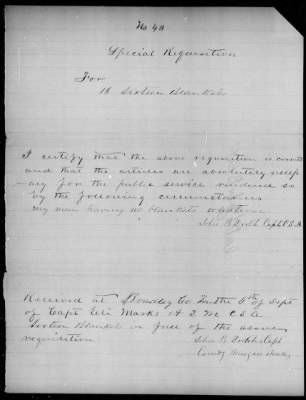 No 40
Special Requisition
For
16 Sixteen Blankets
I certify that the above requisition is correct
and that the articles are absolutely necess
-ary for the public service rendered so
by the following circumstances
my men having no blankets whatever
John B Capt C.S.A
Received at Bradley Co the 6th of Sept
of Capt Marks A Q M C S A
Sixteen Blankets in full of the above
requisition
John B Capt